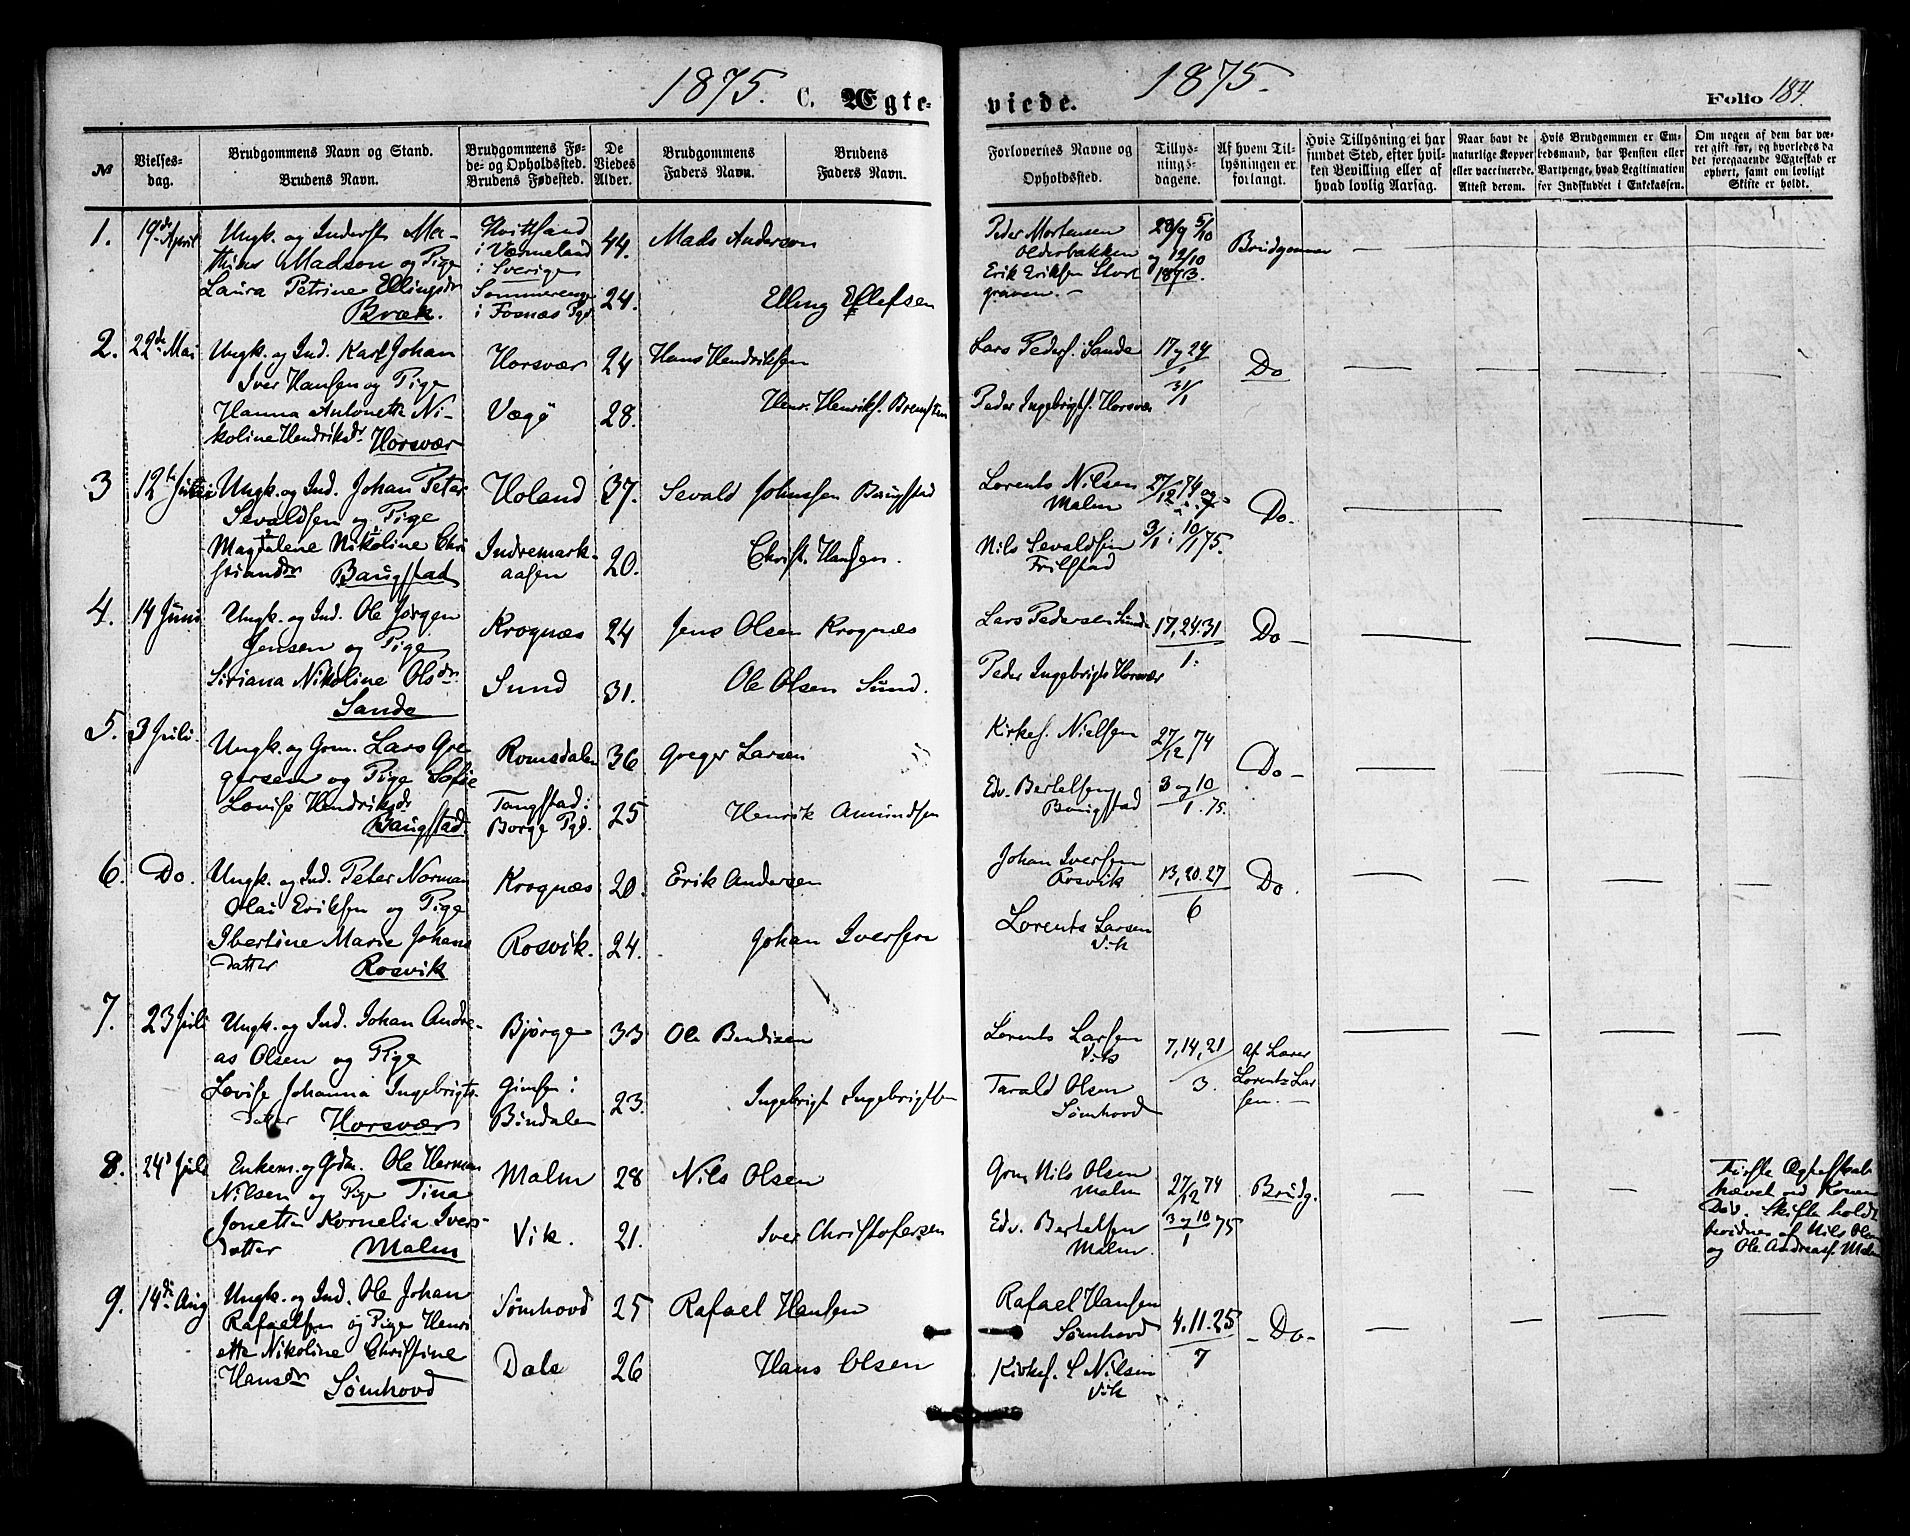 1875. C. Ægte-
№
Vielses-
dag.
Brudgommens Navn og Stand.
Brudens Navn.
Brudgommens Fø-
de- og Opholdssted.
Brudens Fødested.
De
Viedes
Alder.
Brudgommens
Faders Navn.
Brudens
Faders Navn.
1. 19de April
Ungk. og Inderst Ma-
thias Madson og Pige
Laura Petrine Ellingsdr
Bræk.
Hvittsand
i Værmeland
i Sverige
Sommerenge
i Fosnæs Pgd.
44.
24.
Mads Anderson
Elling Ellefsen
2. 22de Mai
Ungk. og Ind. Karl Johan
Iver Hansen og Pige
Hanna Antonette Ni-
koline Hendriksdr. Horsvær
Horsvær
Vægø
24
28.
Hans Hendriksen
Henr. Henriks.
3 12te
Ungk. og Ind. Johan Peter
Sevaldsen og Pige
Magdalene Nikoline Chri
stiansdr Baugstad
Holand
Indremark-
aasen
37.
20.
Sevald Johnssen Baugstad
Christ. Hansen.
4. 14 Juni
Ungk. og Ind. Ole Jørgen
Jensen og Pige
Siriana Nikoline Olsdr.
Sande
Krognæs
Sund
24
31.
Jens Olsen Krognæs
Ole Olsen Sund.
5. 3 Juli.
Ungk. og Grm. Lars Gre-
gersen og Pige Sofie
Lovise Hendriksdr
Baugstad
Romsdalen
Tangstad i
Borge Pgd.
36
25
Greger Larsen
Henrik Amundsen
6. Do.
Ungk. og Ind. Peter Norman
Olai Eriksen og Pige
Ibertine Marie Johans
datter Rosvik
Krognæs
Rosvik.
20.
24.
Erik Andersen
Johan Iversen
7. 23 Juli
Ungk. og Ind. Johan Andre-
as Olsen og Pige
Lovise Johanna Ingebrigts-
datter Horsvær
Bjørge
Gimsen i
Bindalen
33
23.
Ole Bendixen
Ingebrigt Ingebrigtsen
8. 24d Juli
Enkem. og Grdm. Ole Herman
Nilsen og Pige Tina
Jonette Kornelia Ivers-
datter Malm
Malm
Vik.
28
21.
Nils Olsen
Iver Christofersen
9. 14de Aug
Ungk. og Ind. Ole Johan
Rafaelsen og Pige Henri
ette Nikoline Christine
Hansdr Sømhovd
Sømhovd
Dale
25
26
Rafael Hansen
Hans Olsen
viede. 1875. Folio 184.
Forlovernes Navne og
Opholdssted.
Tillys-
nings-
dagene.
Af hvem Til-
lysningen er
forlangt.
Hvis Tillysning ei har
fundet Sted, efter hvil-
ken Bevilling eller af
hvad lovlig Aarsag.
Naar havt de
naturlige Kopper
eller vaccinerede.
Attest derom.
Hvis Brudgommen er Em-
bedsmand, har Pension eller
Vartpenge, hvad Legitimation
for Indskuddet i Enkekassen.
Om nogen af dem har væ-
ret gift før, og hvorledes da
det foregaaende Ægteskab er
ophørt, samt om lovligt
Skifte er holdt.
Peder Mortensen
Olderbakken
Erik Eriksen Stort
graven.
28/9 5/10
og 12/10
1873.
Brudgommen
Lars Peders. Sande
Peder Ingebrigts. Horsvær
17 og 24
1
31/1
Do
Lorents Nilsen
Malm
Nils Sevaldsen
27/12 74 og
3/1 10/1 75.
Do.
Lars Pedersen Sund
Peder Ingebrigts Horsvær
17, 24. 31
1.
Do
Kirkes. Nielsen
Edv. Bertelsen
Baugstad
27/12 74
3 og 10
1. 75.
Do
Johan Iversen
Rosvik
Lorents Larsen
Vik
13, 20. 27
6
Do.
Lorents Larsen
Vik
Tarald Olsen
Sømhovd
7, 14, 21
3.
Af Laver
Lorents Lar
sen.
Grm. Nils Olsen
Malm
Edv. Bertelsen
Malm.
27/12 74
3 og 10 75
1
Brudg.
Første Ægteskab
hævet ved Konens
Død. Skifte holdt
bevidnes af Nils Olsen
og Ole Andreas. Malm
Rafael Hansen
Sømhovd
Kirkes. L Nilsen
Vik
4. 11. 25
7
Do